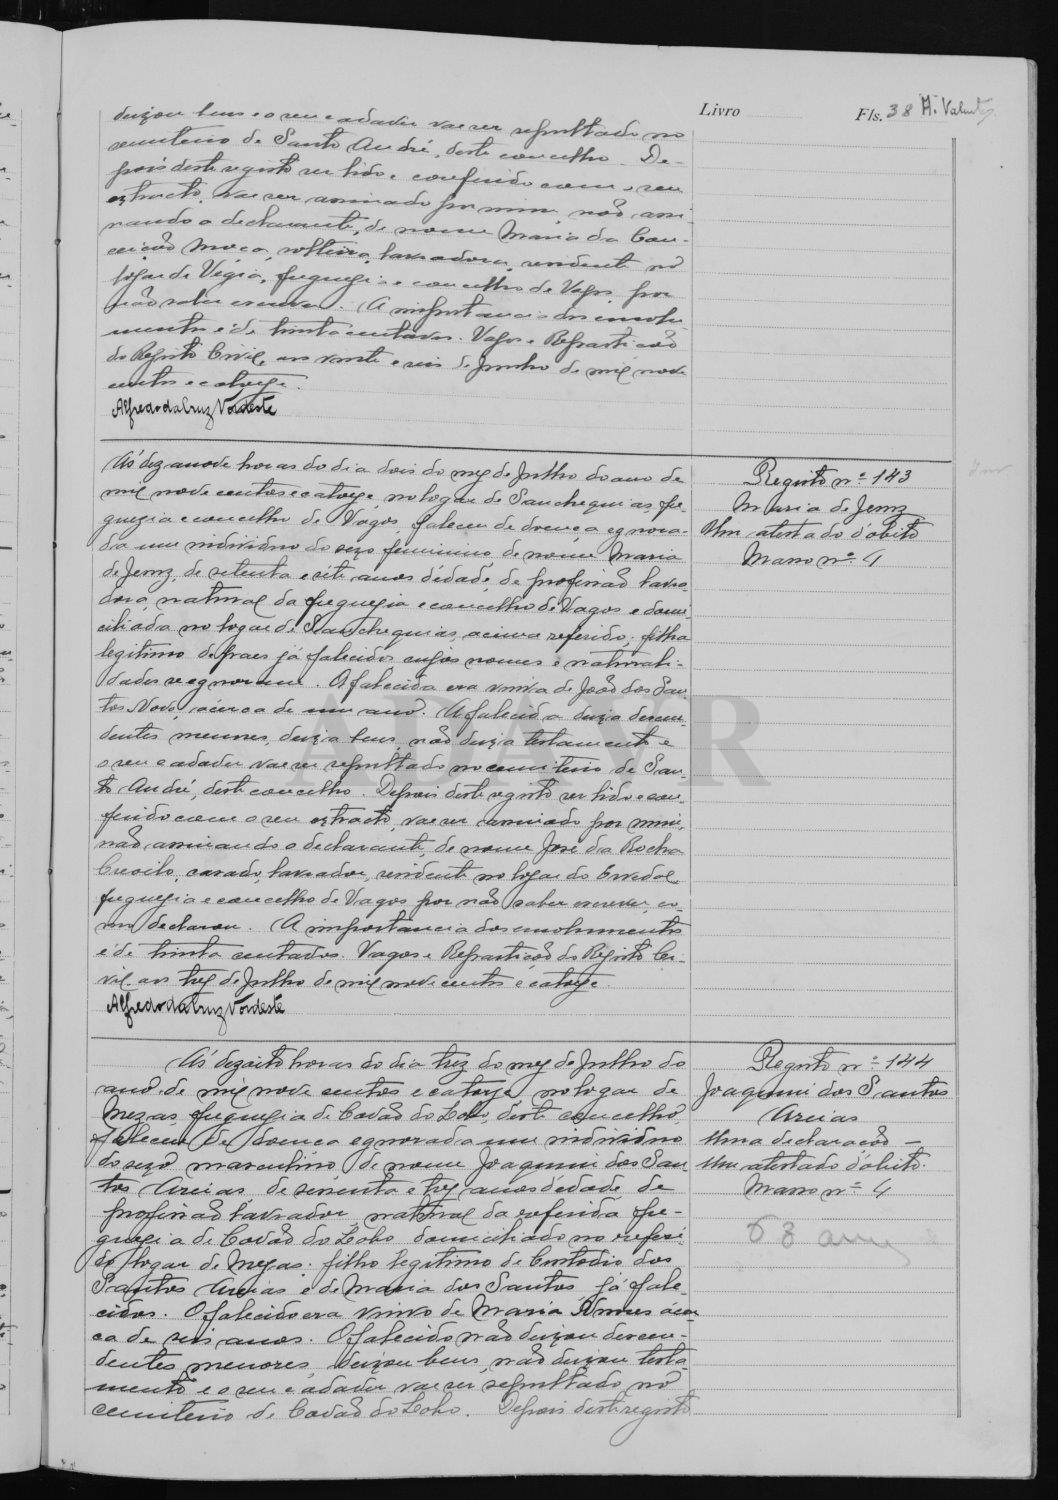 Livro Fls. 38 A. Valente
deixou bens e o seu cadaver vae ser sepultado no
cemiterio de Santo André, deste concelho. De-
pois deste registo ser lido e conferido com o seu
extracto, vae ser assinado por mim, não assi-
nando a declarante, de nome Maria da Con-
ceição Moça, solteira, lavradora, residente no
logar de Vigia, freguezia e concelho de Vagos, por
não saber escrever. A importancia dos emolu-
mentos é de trinta centavos. Vagos e Repartição
do Registo Civil, aos vinte e seis de Junho de mil nove
centos e catorze.
Alfredo da Cruz Nordeste
Ás dezanove horas do dia dois do mez de Julho do ano de
mil nove centos e catorze, no logar de Sanchequias, fre-
guezia e concelho de Vagos, faleceu de doença egnora-
da um individuo do sexo feminino, de nome Maria
de Jemz, de setenta e sete anos d'edade, de profissão lavra-
dora, natural da freguezia e concelho de Vagos e domi-
ciliada no logar de Sanchequias, acima referido; filha
legitima de paes já falecidos, cujos nomes e naturali-
dades se egnoram. A falecida era viuva de João dos San-
tos Novo, acerca de um ano. A falecida deixa descen-
dentes menores, deixa bens, não deixa testamento e
o seu cadaver vae ser sepultado no cemiterio de San-
to André, deste concelho. Depois deste registo ser lido e con-
ferido com o seu extracto, vae ser assinado por mim,
não assinando o declarante, de nome José da Rocha
Creoilo, casado, lavrador, residente no logar do Corredal
freguezia e concelho de Vagos por não saber escrever, co-
mo declarou. A importancia dos emolumentos
é de trinta centavos. Vagos e Repartição do Registo Ci-
vil, aos trez de Julho de mil nove centos e catorze.
Alfredo da Cruz Nordeste
Registo nº 143
Maria de Jemz
Um atestado d'obito
Masso nº 4
Ás dezoito horas do dia trez do mez de Julho do
ano de mil nove centos e catorze, no logar de
Mezas, freguezia de Covão do Lobo, deste concelho,
faleceu de doença egnorada um individuo
do sexo masculino de nome Joaquim dos San
tos Areias, de sessenta e trez anos d'edade de
profissão lavrador, natural da referida fre-
guezia de Covão do Lobo domiciliado no referi-
do logar de Mezas; filho legitimo de Custodio dos
Santos Areias e de Maria dos Santos, já fale-
cidos. O falecido era viuvo de Maria Nunes acer
ca de seis anos. O falecido não deixou descen-
dentes menores, deixou bens, não deixou testa-
mento e o seu cadaver vae ser sepultado no
cemiterio de Covão do Lobo. Depois deste registo
Registo nº 144
Joaquim dos Santos
Areias
Uma declaração —
Um atestado d'obito.
Masso nº 4
63 anos
ADAVR